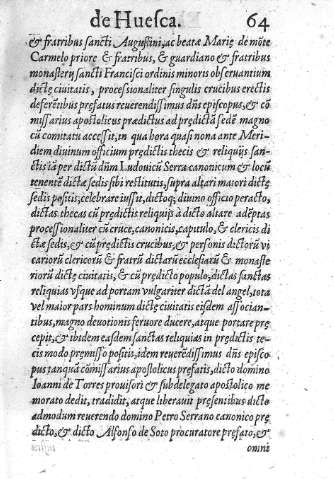 de Huesca. 64
& fratribus sancti Augustini, ac beatæ Marię de mōte
Carmelo priorę & fratribus, & guardiano & fratribus
monasterij sancti Francisci ordinis minoris obseruantium
dictę ciuitatis, processionaliter singulis crucibus erectis
deferētibus prefatus reuerendissimus dn̄s episcopus, & cō
missarius apostolicus prædictus ad prędictā sedē magno
cū comitatu accessit, in qua hora quasi nona ante Meri-
diem diuinum officium prędictis thecis & reliquijs san-
ctis tā per dictū dn̄m Ludouicū Serra canonicum & locū
tenentē dictæ sedis sibi restitutis, supra altari maiori dictę
sedis positis, celebrare iussit, dictoq; diuino officio peracto,
dictas thecas cū predictis reliquijs à dicto altare adeptas
processionaliter cū cruce, canonicis, capitulo, & clericis di
ctæ sedis, & cū prędictis crucibus, & personis dictorū vi
cariorū clericorū & fratrū dictarū ecclesiarū & monaste
riorū dictę ciuitatis, & cū prędicto populo, dictas sanctas
reliquias vsque ad portam vulgariter dictā del angel, tota
vel maior pars hominum dictę ciuitatis eisdem associan-
tibus, magno deuotionis feruore ducere, atque portare prę
cepit, & ibidem easdem sanctas reliquias in predictis te-
cis modo premisso positis, idem reuerēdissimus dn̄s episco
pus tanquā cōmissarius apostolicus prefatis, dicto domino
Ioanni de Torres prouisori & subdelegato apostolico me
morato dedit, tradidit, atque liberauit presentibus dicto
admodum reuerendo domino Petro Serrano canonico prę
dicto, & dicto Alfonso de Soto procuratore prefato, &
omni